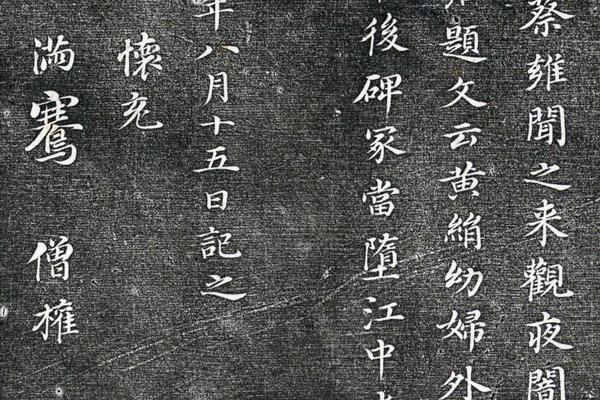 蔡雍聞之来觀夜闇
題文云黄絹幼婦外
後碑冢當墮江中
年八月十五日記之
懷充
滿騫 僧權